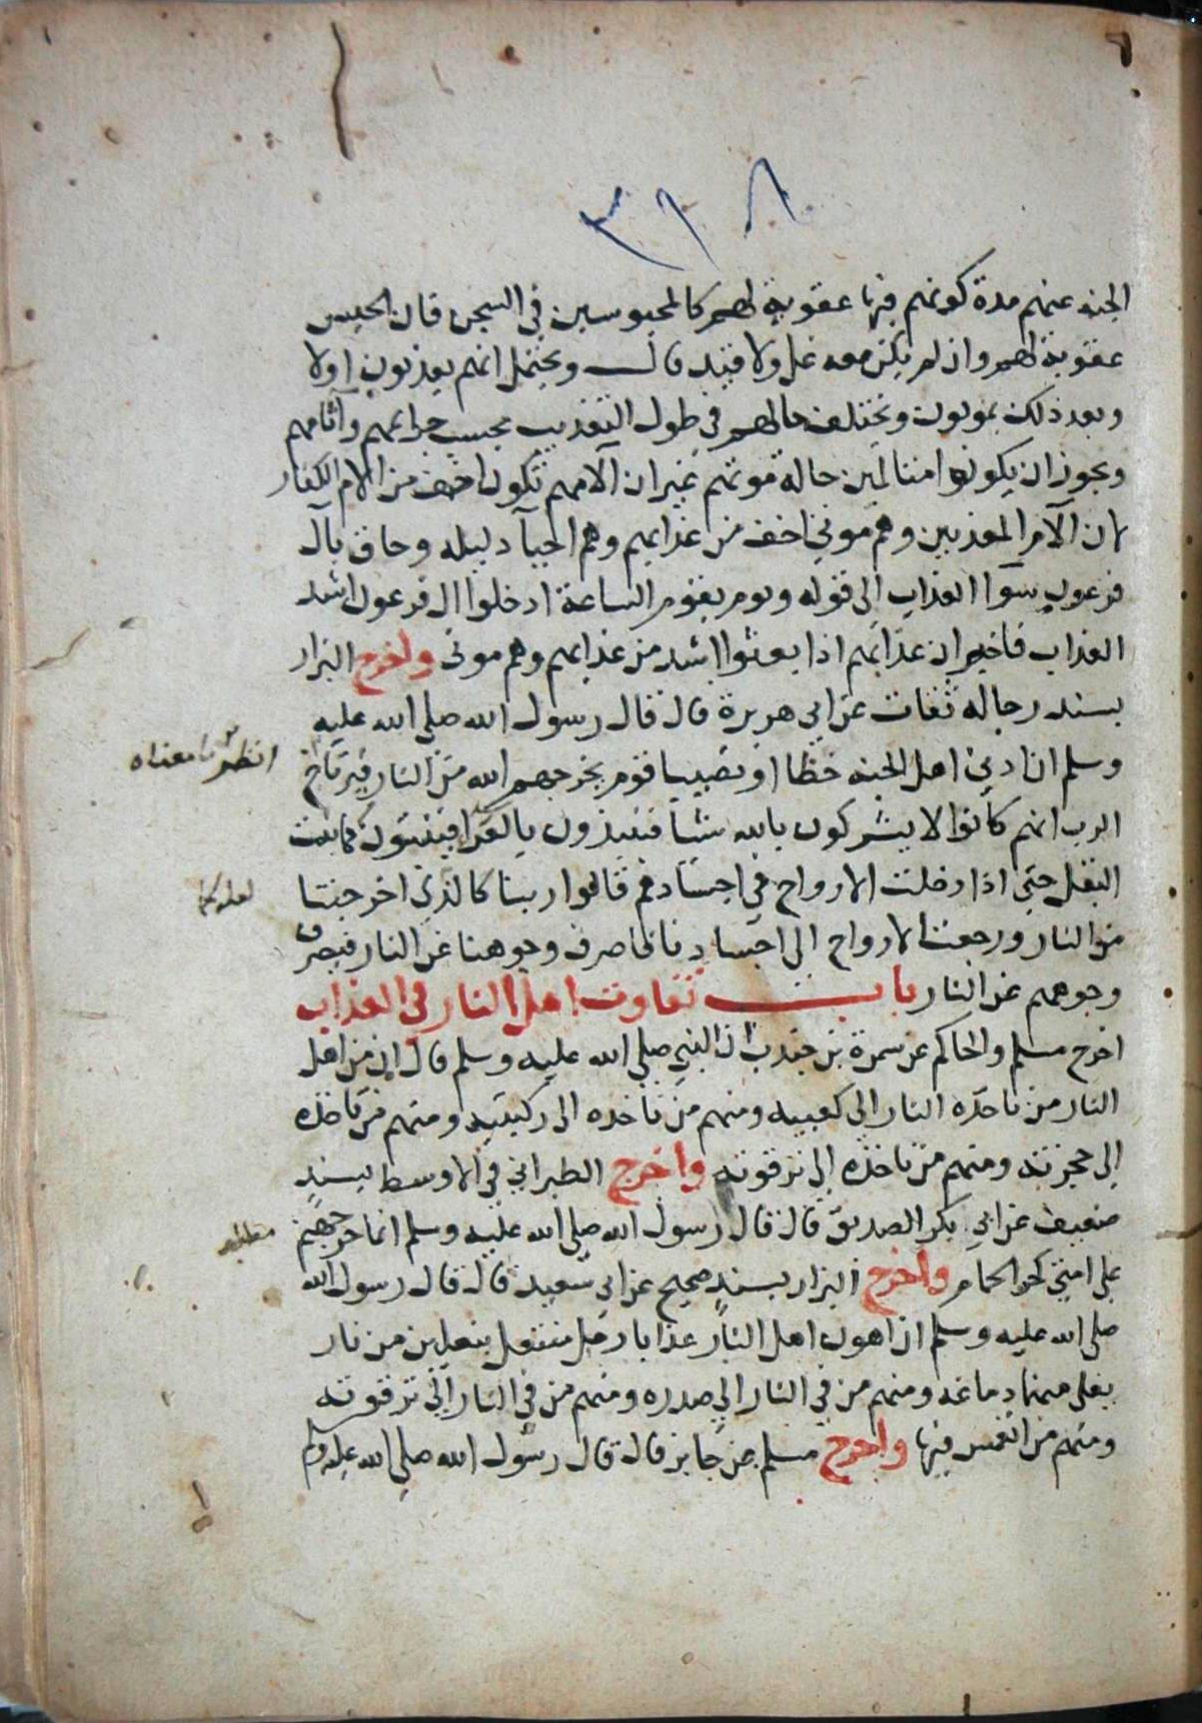 ٣٩٨
الجنه عنهم مدة كونهم فيها عقوبة لهم كالمحبوسين في السجن فان الحبس
عقوبة لهم وان لم يكن معه غل ولا قيد قال ويحتمل انهم يعذبون اولا
وبعد ذلك يموتون وتختلف حالهم في طول التعذيب بحسب جرايمهم وآثامهم
ويجوز ان يكونوا متالمين حالة موتهم غير ان آلامهم تكون اخف من الام الكفار
لان آلام المعذبين وهم موتي اخف من عذابهم وهم احيآ دليله وحاق بآل
فرعون سوا العذاب الى قوله ويوم يقوم الساعة ادخلوا ال فرعون اشد
العذاب فاخبر ان عذابهم اذا بعثوا اشد من عذابهم وهم موتى واخرج البزار
بسند رجاله ثقات عن ابي هريرة قال قال رسول الله صلى الله عليه
وسلم ان ادني اهل الجنه حظا او نصيبا قوم يخرجهم الله من النار فيرتاح
انظر ما معناه
الرب انهم كانوا لا يشركون بالله شيا فينبذون بالعرا فينبتون كما ينبت
البقل حتى اذا دخلت الارواح في اجسادهم قالوا ربنا كالذي اخرجتنا
لعله كما
من النار ورجعت الارواح الى اجسادنا فاصرف وجوهنا عن النار فيصرف
وجوههم عن النار باب تفاوت اهل النار في العذاب
اخرج مسلم والحاكم عن سمرة بن جندب ان النبي صلى الله عليه وسلم قال ان من اهل
النار من تاخذه النار الى كعبيه ومنهم من تاخذه الى ركبتيه ومنهم من تاخذه
الى حجزته ومنهم من تاخذه الى ترقوته واخرج الطبراني في الاوسط بسند
ضعيف عن ابي بكر الصديق قال قال رسول الله صلى الله عليه وسلم انما حر جهنم
مطلب
على امتي كحر الحمام واخرج البزار بسند صحيح عن ابي سعيد قال قال رسول الله
صلى الله عليه وسلم ان اهون اهل النار عذابا رجل منتعل بنعلين من نار
يغلي منهما دماغه ومنهم من في النار الى صدره ومنهم من في النار الى ترقوته
ومنهم من انغمس فيها واخرج مسلم عن جابر قال قال رسول الله صلى الله عليه وسلم